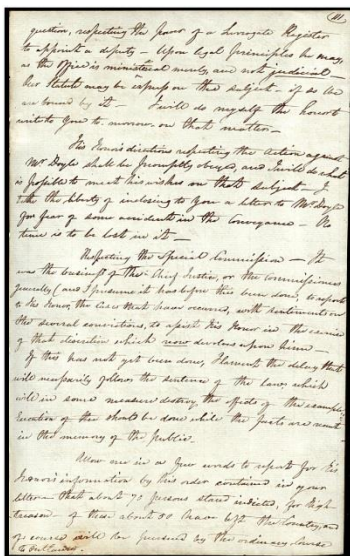 question, respecting the power of a Surrogate Register
to appoint a deputy - Upon legal principles he may,
as the office is ministerial merely, and not judicial -
Our Statute may be express on the subject - if so we
are bound by it - I will do myself the honor to
write to you to morrow, on that matter -
His Honor's directions respecting the action against
Mr Doyle shall be promptly obeyed, and I will do what
is possible to meet his wishes on that subject - I
take the liberty of inclosing to you a letter to Mr Doyle
for fear of some accident in the Conveyance - No
time is to be lost in it -
Respecting the Special Commission - It
was the business of the Chief Justice, or the Commissioners
generally, and I presume it has before this been done, to report
to His Honor, the Cases that have occurred, with
the several convictions, to assist His Honor in the exercise
of that discretion which now devolves upon him -
If this has not yet been done, I lament the delay that
will necessarily follow the sentence of the law, which
will in some measure destroy the effects of the example.
Execution of the should be done while the facts are recent
in the memory of the public.
Allow me in a few words to report for His
Honor's information by his order contained in your
letter - that about 70 persons stand indicted, for high
treason - of these about 50 have left the Country, and
of course will be pursued by the ordinary course
to outlawry.